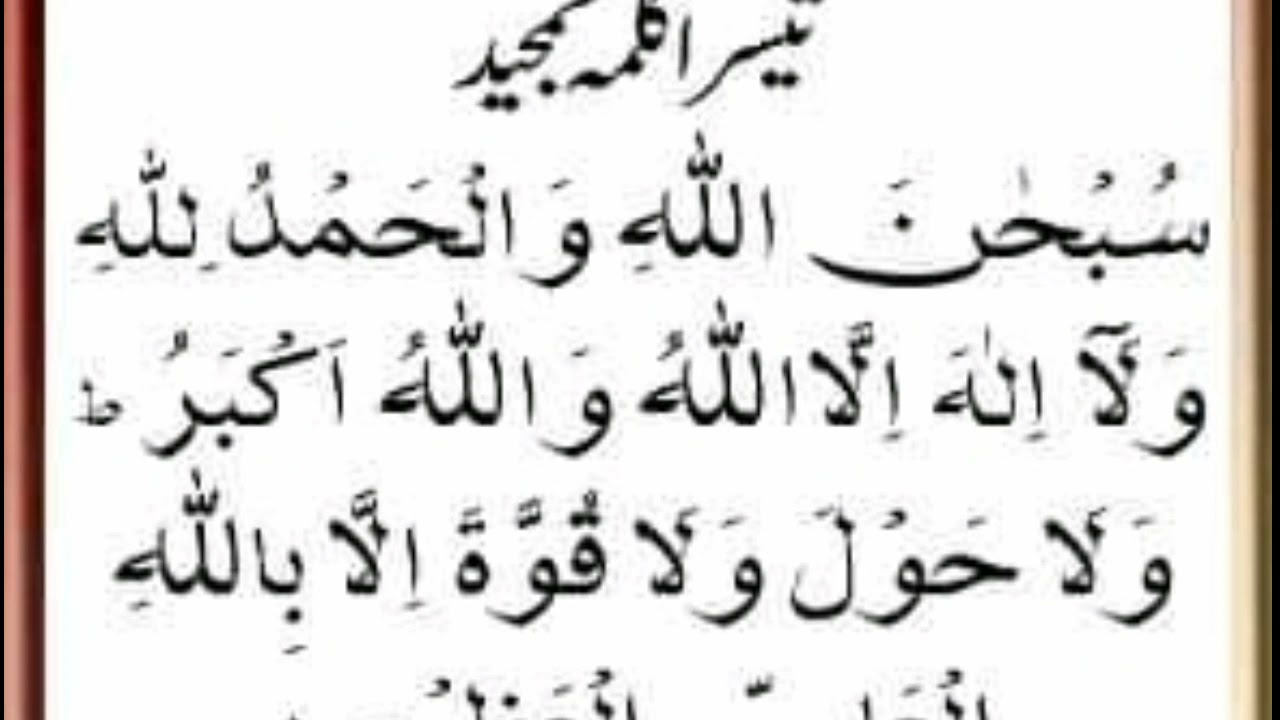 تیسرا کلمہ تمجید
سُبْحٰنَ اللّٰهِ وَالْحَمْدُ لِلّٰهِ
وَلَآ اِلٰهَ اِلَّا اللّٰهُ وَاللّٰهُ اَكْبَرُ ؕ
وَلَا حَوْلَ وَلَا قُوَّةَ اِلَّا بِاللّٰهِ